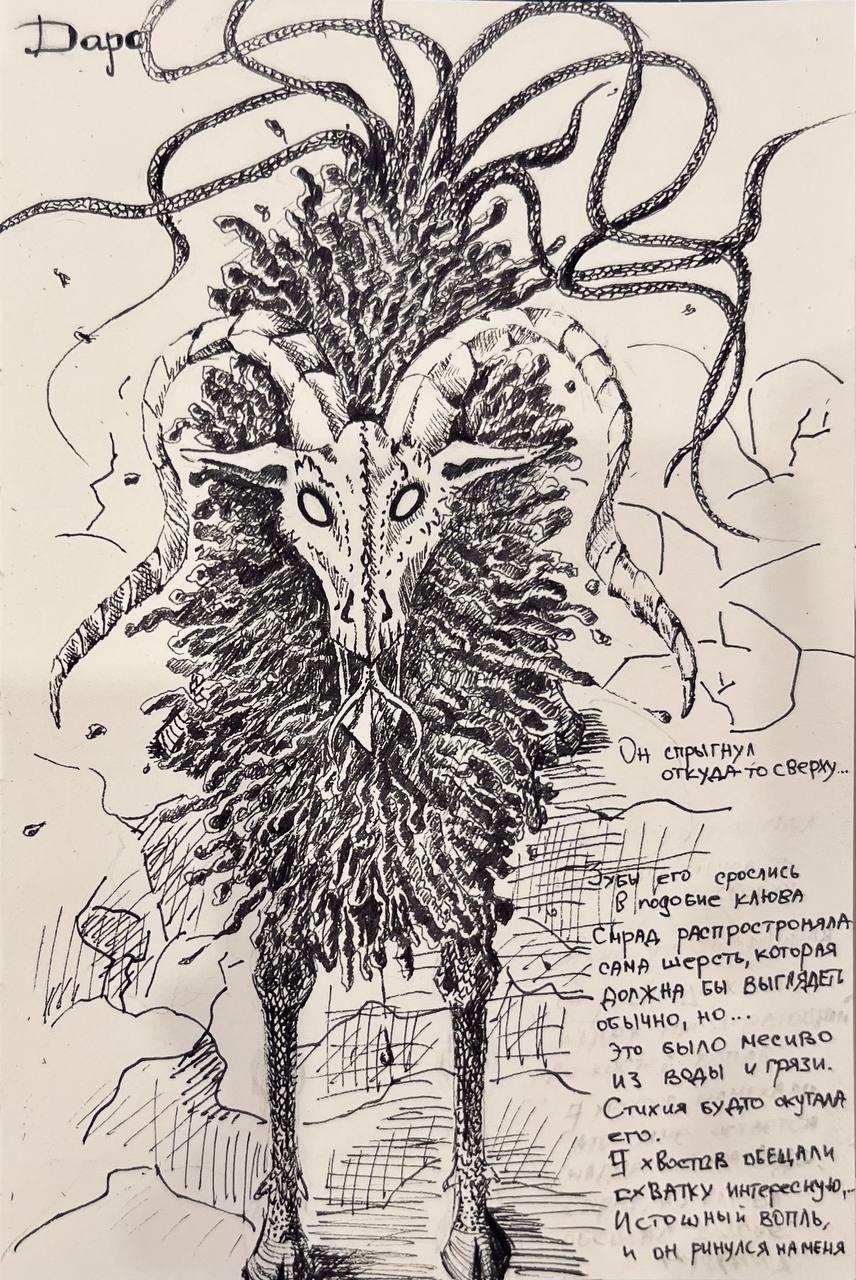 Даро
Он спрыгнул
откуда-то сверху...
Зубы его срослись
в подобие клюва
Смрад распростроняла
сама шерсть, которая
должна бы выглядеть
обычно, но...
Это было месиво
из воды и грязи.
Стихия будто окутала
его.
9 хвостов обещали
схватку интересную,..
Истошный вопль,
и он ринулся на меня